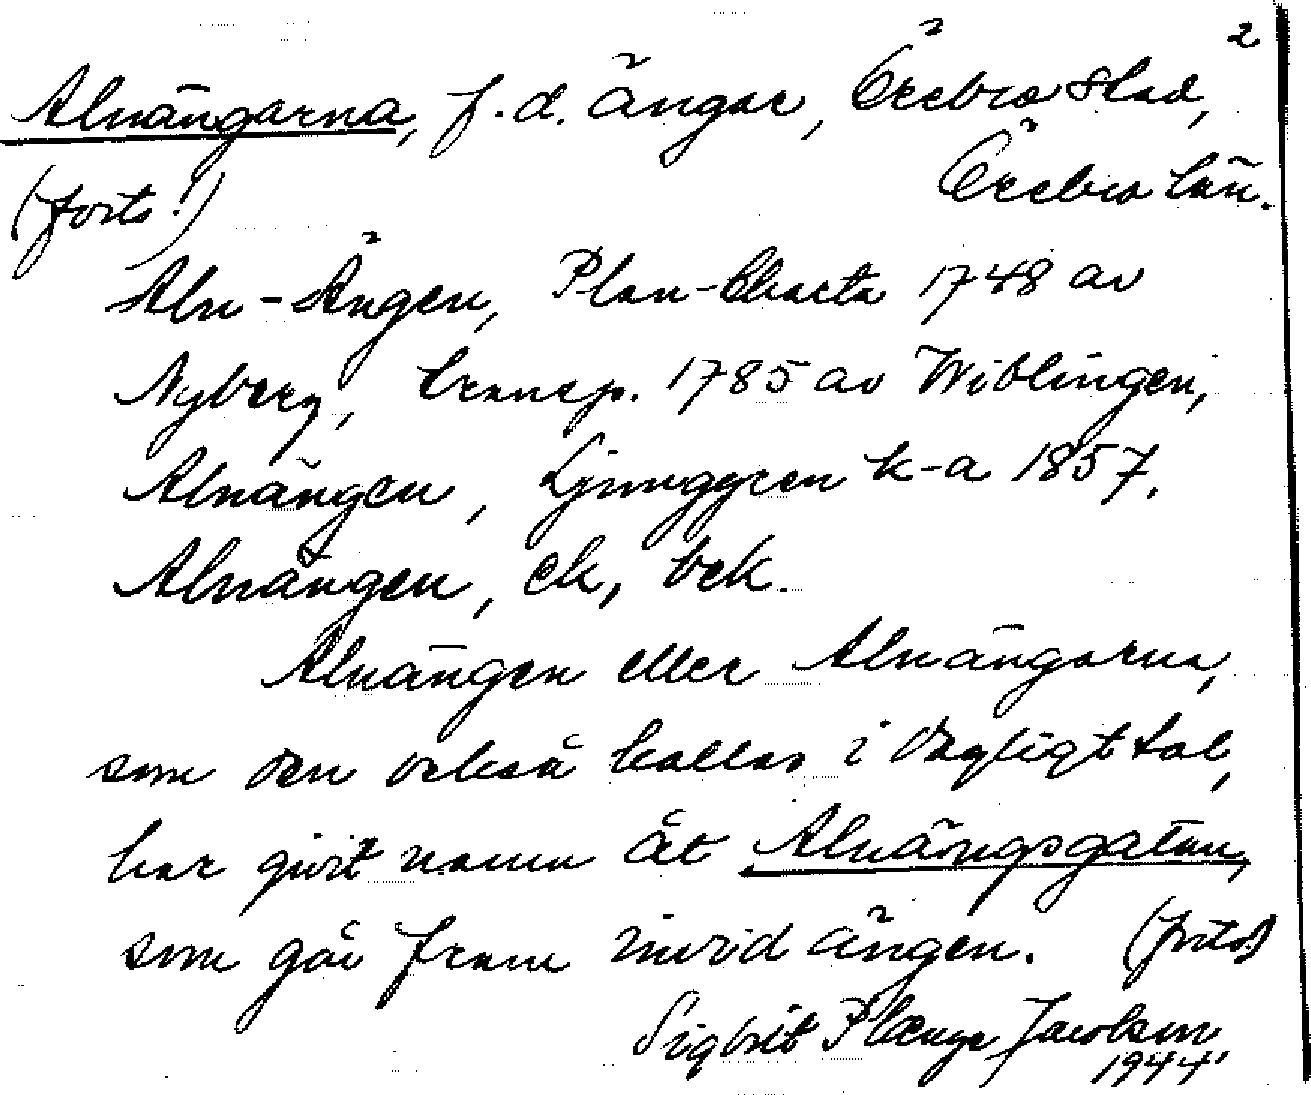 2
Alnängarna, f.d. ängar, Örebro stad,
(forts.) Örebro län.
Aln-Ängen, Plan-Charta 1748 av
Nyberg, transp. 1785 av Wiblingen,
Alnängen, Ljunggren k-a 1857.
Alnängen, ek, bek.
Alnängen eller Alnängarna,
som den också kallas i dagligt tal,
har givit namn åt Alnängsgatan,
som går fram invid ängen. (forts.)
Sigbrit Plænge Jacobson
1944